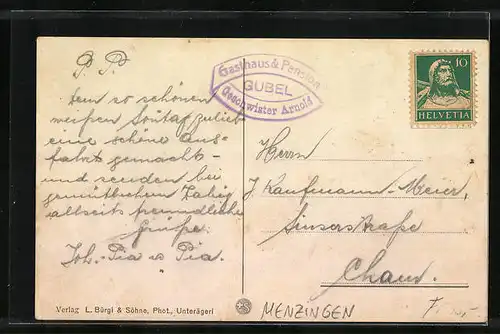 P. P.
Dem so schönen
weissen Sontag zulieb
eine schöne Aus-
fahrt gemacht -
und senden bei
gemütlichem Zabig
allseits freundliche
Grüsse.
Joh. - Pia u Pia.
Gasthaus & Pension
GUBEL
Geschwister Arnold
10
HELVETIA
Herrn
J. Kaufmann-Meier,
Sinserstraße
Cham.
Verlag L. Bürgi & Söhne, Phot., Unterägeri
MENZINGEN